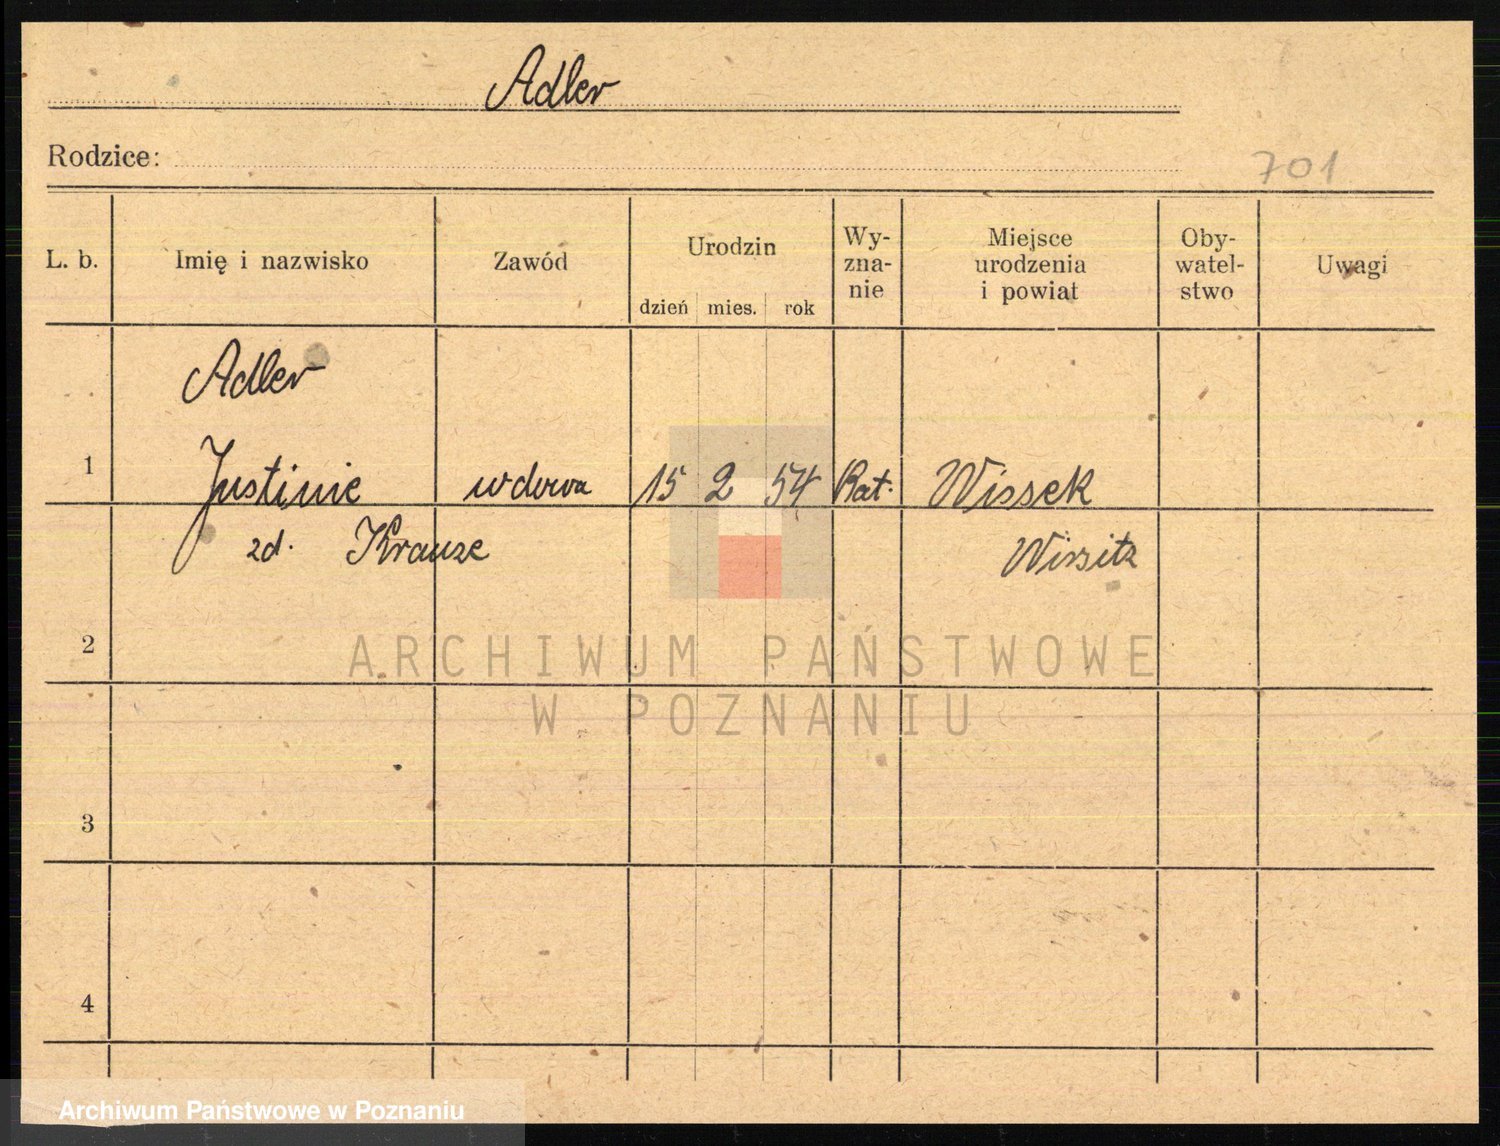 Adler
Rodzice:
701
L. b.
Imię i nazwisko
Zawód
Urodzin
dzień mies. rok
Wy-
zna-
nie
Miejsce
urodzenia
i powiat
Oby-
watel-
stwo
Uwagi
Adler
1 Justinie wdowa 15 2 54 Kat. Wissek
zd. Krause Wirsitz
2
3
4
ARCHIWUM PAŃSTWOWE
W POZNANIU
Archiwum Państwowe w Poznaniu